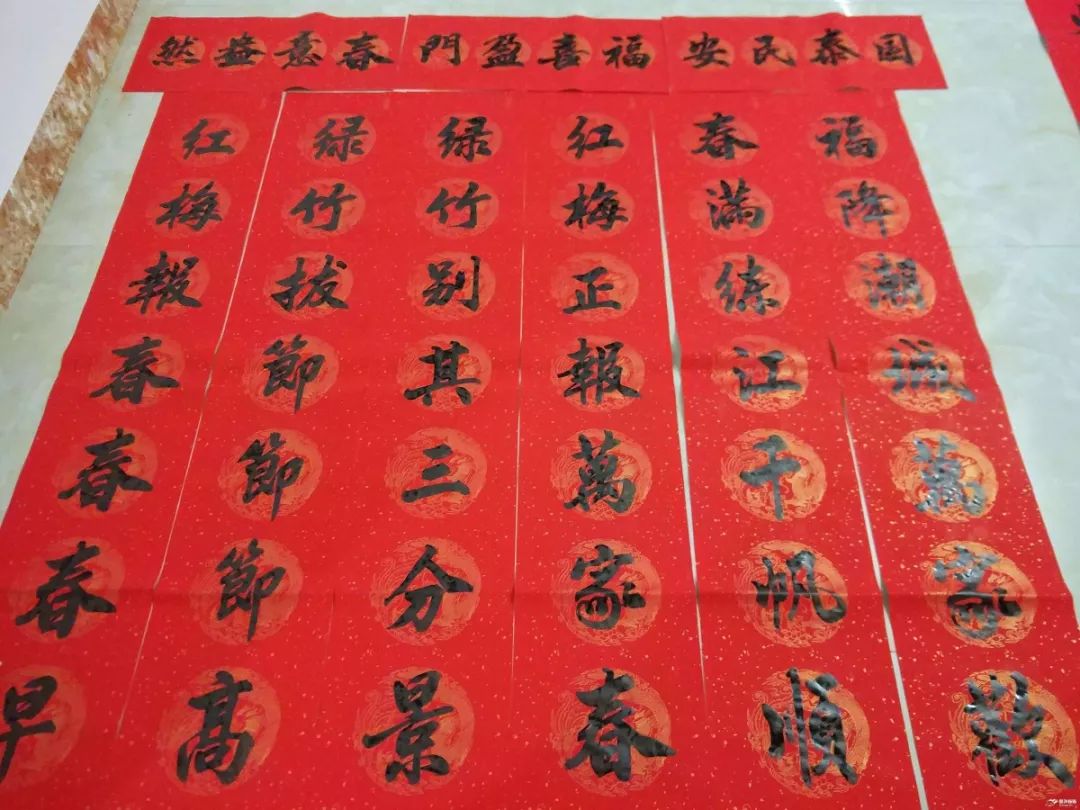 国泰民安
福喜盈門
春意盎然
福降潮城萬家歡
春满练江千帆順
红梅正報萬家春
绿竹别其三分景
绿竹拔節節節高
红梅報春春春早